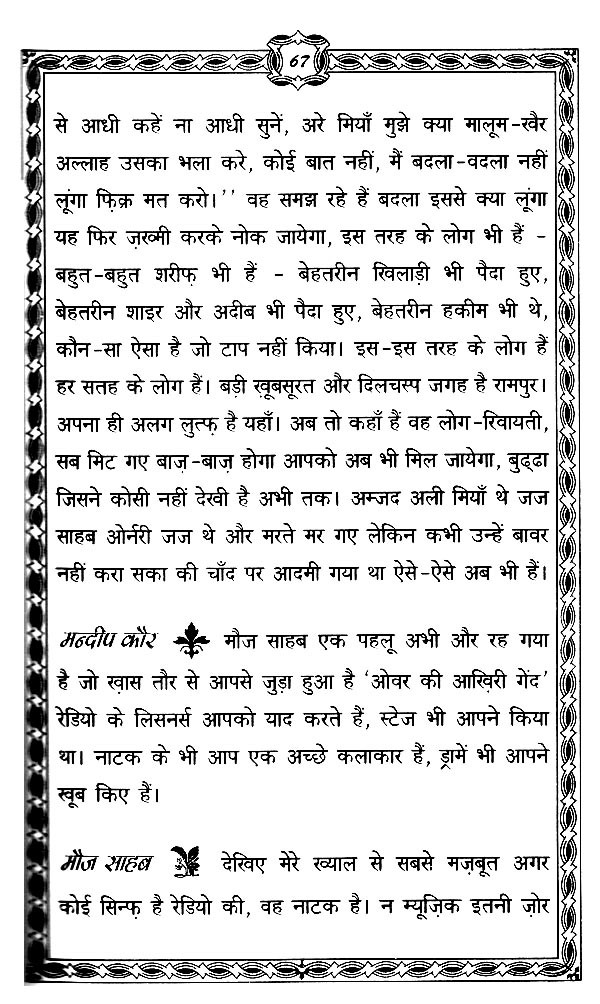 67
से आधी कहें ना आधी सुनें, अरे मियाँ मुझे क्या मालूम-खैर
अल्लाह उसका भला करे, कोई बात नहीं, मैं बदला-वदला नहीं
लूंगा फ़िक्र मत करो।'' वह समझ रहे हैं बदला इससे क्या लूंगा
यह फिर ज़ख्मी करके नोक जायेगा, इस तरह के लोग भी हैं -
बहुत-बहुत शरीफ़ भी हैं - बेहतरीन खिलाड़ी भी पैदा हुए,
बेहतरीन शाइर और अदीब भी पैदा हुए, बेहतरीन हकीम भी थे,
कौन-सा ऐसा है जो टाप नहीं किया। इस-इस तरह के लोग हैं
हर सतह के लोग हैं। बड़ी ख़ूबसूरत और दिलचस्प जगह है रामपुर।
अपना ही अलग लुत्फ़ है यहाँ। अब तो कहाँ हैं वह लोग-रिवायती,
सब मिट गए बाज़-बाज़ होगा आपको अब भी मिल जायेगा, बुढ्ढा
जिसने कोसी नहीं देखी है अभी तक। अम्जद अली मियाँ थे जज
साहब ओर्नरी जज थे और मरते मर गए लेकिन कभी उन्हें बावर
नहीं करा सका की चाँद पर आदमी गया था ऐसे-ऐसे अब भी हैं।
मन्दीप कौर मौज साहब एक पहलू अभी और रह गया
है जो ख़ास तौर से आपसे जुड़ा हुआ है 'ओवर की आखिरी गेंद'
रेडियो के लिसनर्स आपको याद करते हैं, स्टेज भी आपने किया
था। नाटक के भी आप एक अच्छे कलाकार हैं, ड्रामें भी आपने
खूब किए हैं।
मौज साहब देखिए मेरे ख्याल से सबसे मज़बूत अगर
कोई सिन्फ़ है रेडियो की, वह नाटक है। न म्यूज़िक इतनी ज़ोर